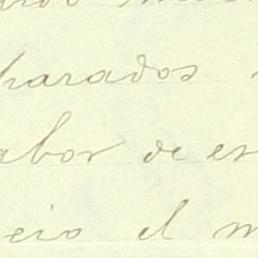 parados
abor de es
eio el m